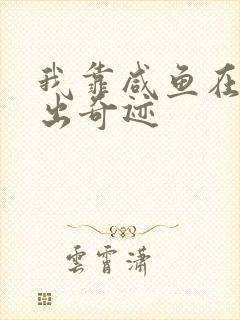 我靠咸鱼在
出奇迹
雲霄瀟